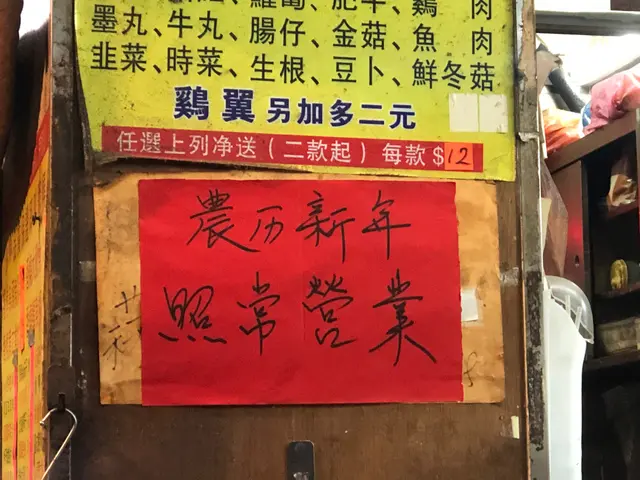 蘿蔔、肥牛、鷄肉
墨丸、牛丸、腸仔、金菇、魚肉
韭菜、時菜、生根、豆卜、鮮冬菇
鷄翼 另加多二元
任選上列净送(二款起)每款$12
農历新年
照常營業